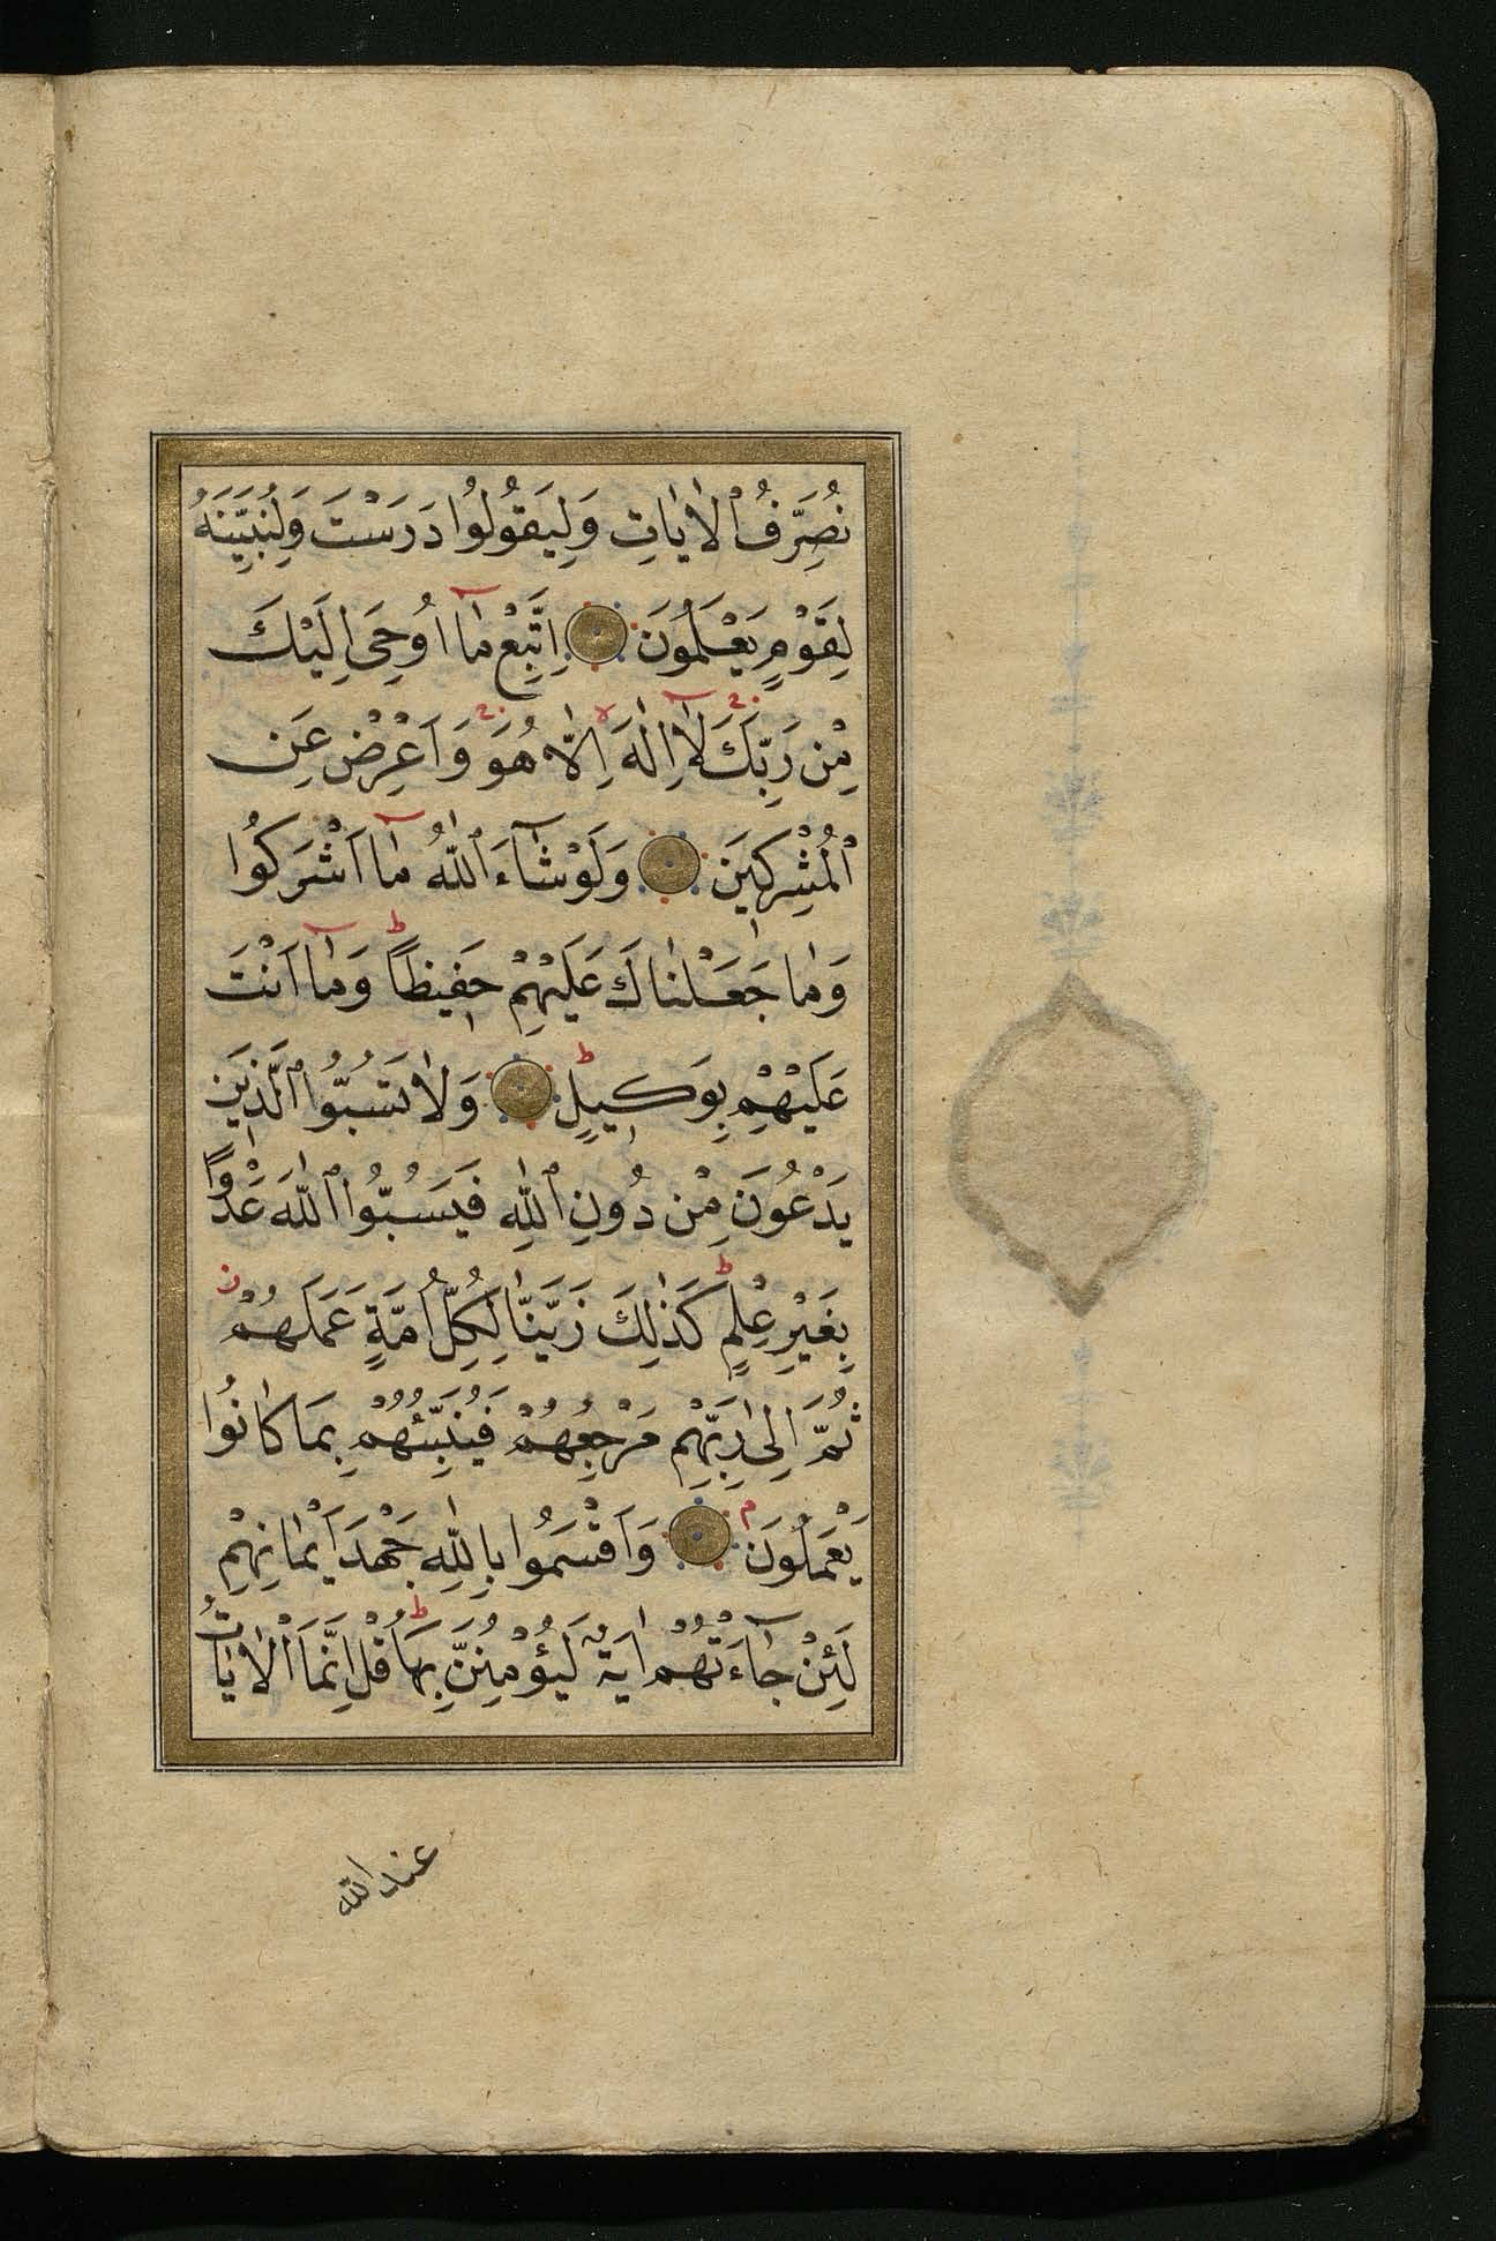 نُصَرِّفُ ٱلْاٰيَاتِ وَلِيَقُولُوا دَرَسْتَ وَلِنُبَيِّنَهُ
لِقَوْمٍ يَعْلَمُونَ اِتَّبِعْ مَٓا اُوحِىَ اِلَيْكَ
مِنْ رَبِّكَ لَٓا اِلٰهَ اِلَّا هُوَ وَاَعْرِضْ عَنِ
ٱلْمُشْرِكِينَ وَلَوْ شَٓاءَ ٱللّٰهُ مَٓا اَشْرَكُوا
وَمَا جَعَلْنَاكَ عَلَيْهِمْ حَفِيظًا ط وَمَٓا اَنْتَ
عَلَيْهِمْ بِوَكِيلٍ ط وَلَا تَسُبُّوا ٱلَّذِينَ
يَدْعُونَ مِنْ دُونِ ٱللّٰهِ فَيَسُبُّوا ٱللّٰهَ عَدْوًا
بِغَيْرِ عِلْمٍ ط كَذٰلِكَ زَيَّنَّا لِكُلِّ اُمَّةٍ عَمَلَهُمْ
ثُمَّ اِلٰى رَبِّهِمْ مَرْجِعُهُمْ فَيُنَبِّئُهُمْ بِمَا كَانُوا
يَعْمَلُونَ م وَاَقْسَمُوا بِاللّٰهِ جَهْدَ اَيْمَانِهِمْ
لَئِنْ جَٓاءَتْهُمْ اٰيَةٌ لَيُؤْمِنُنَّ بِهَا ط قُلْ اِنَّمَا ٱلْاٰيَاتُ
عند الله